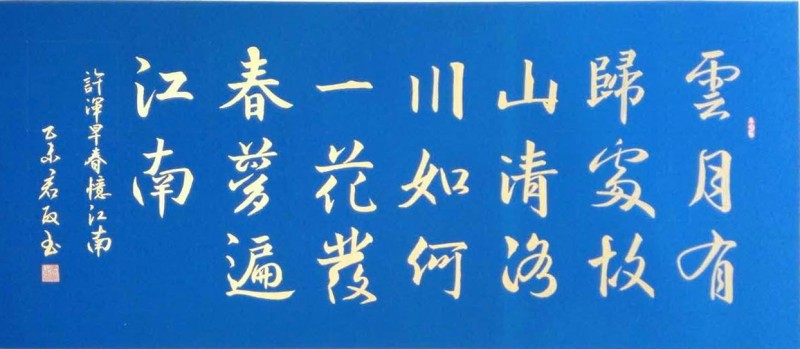 雲月有
歸處故
山清洛
川如何
一花發
春夢遍
江南
許渾早春憶江南
乙未君政书